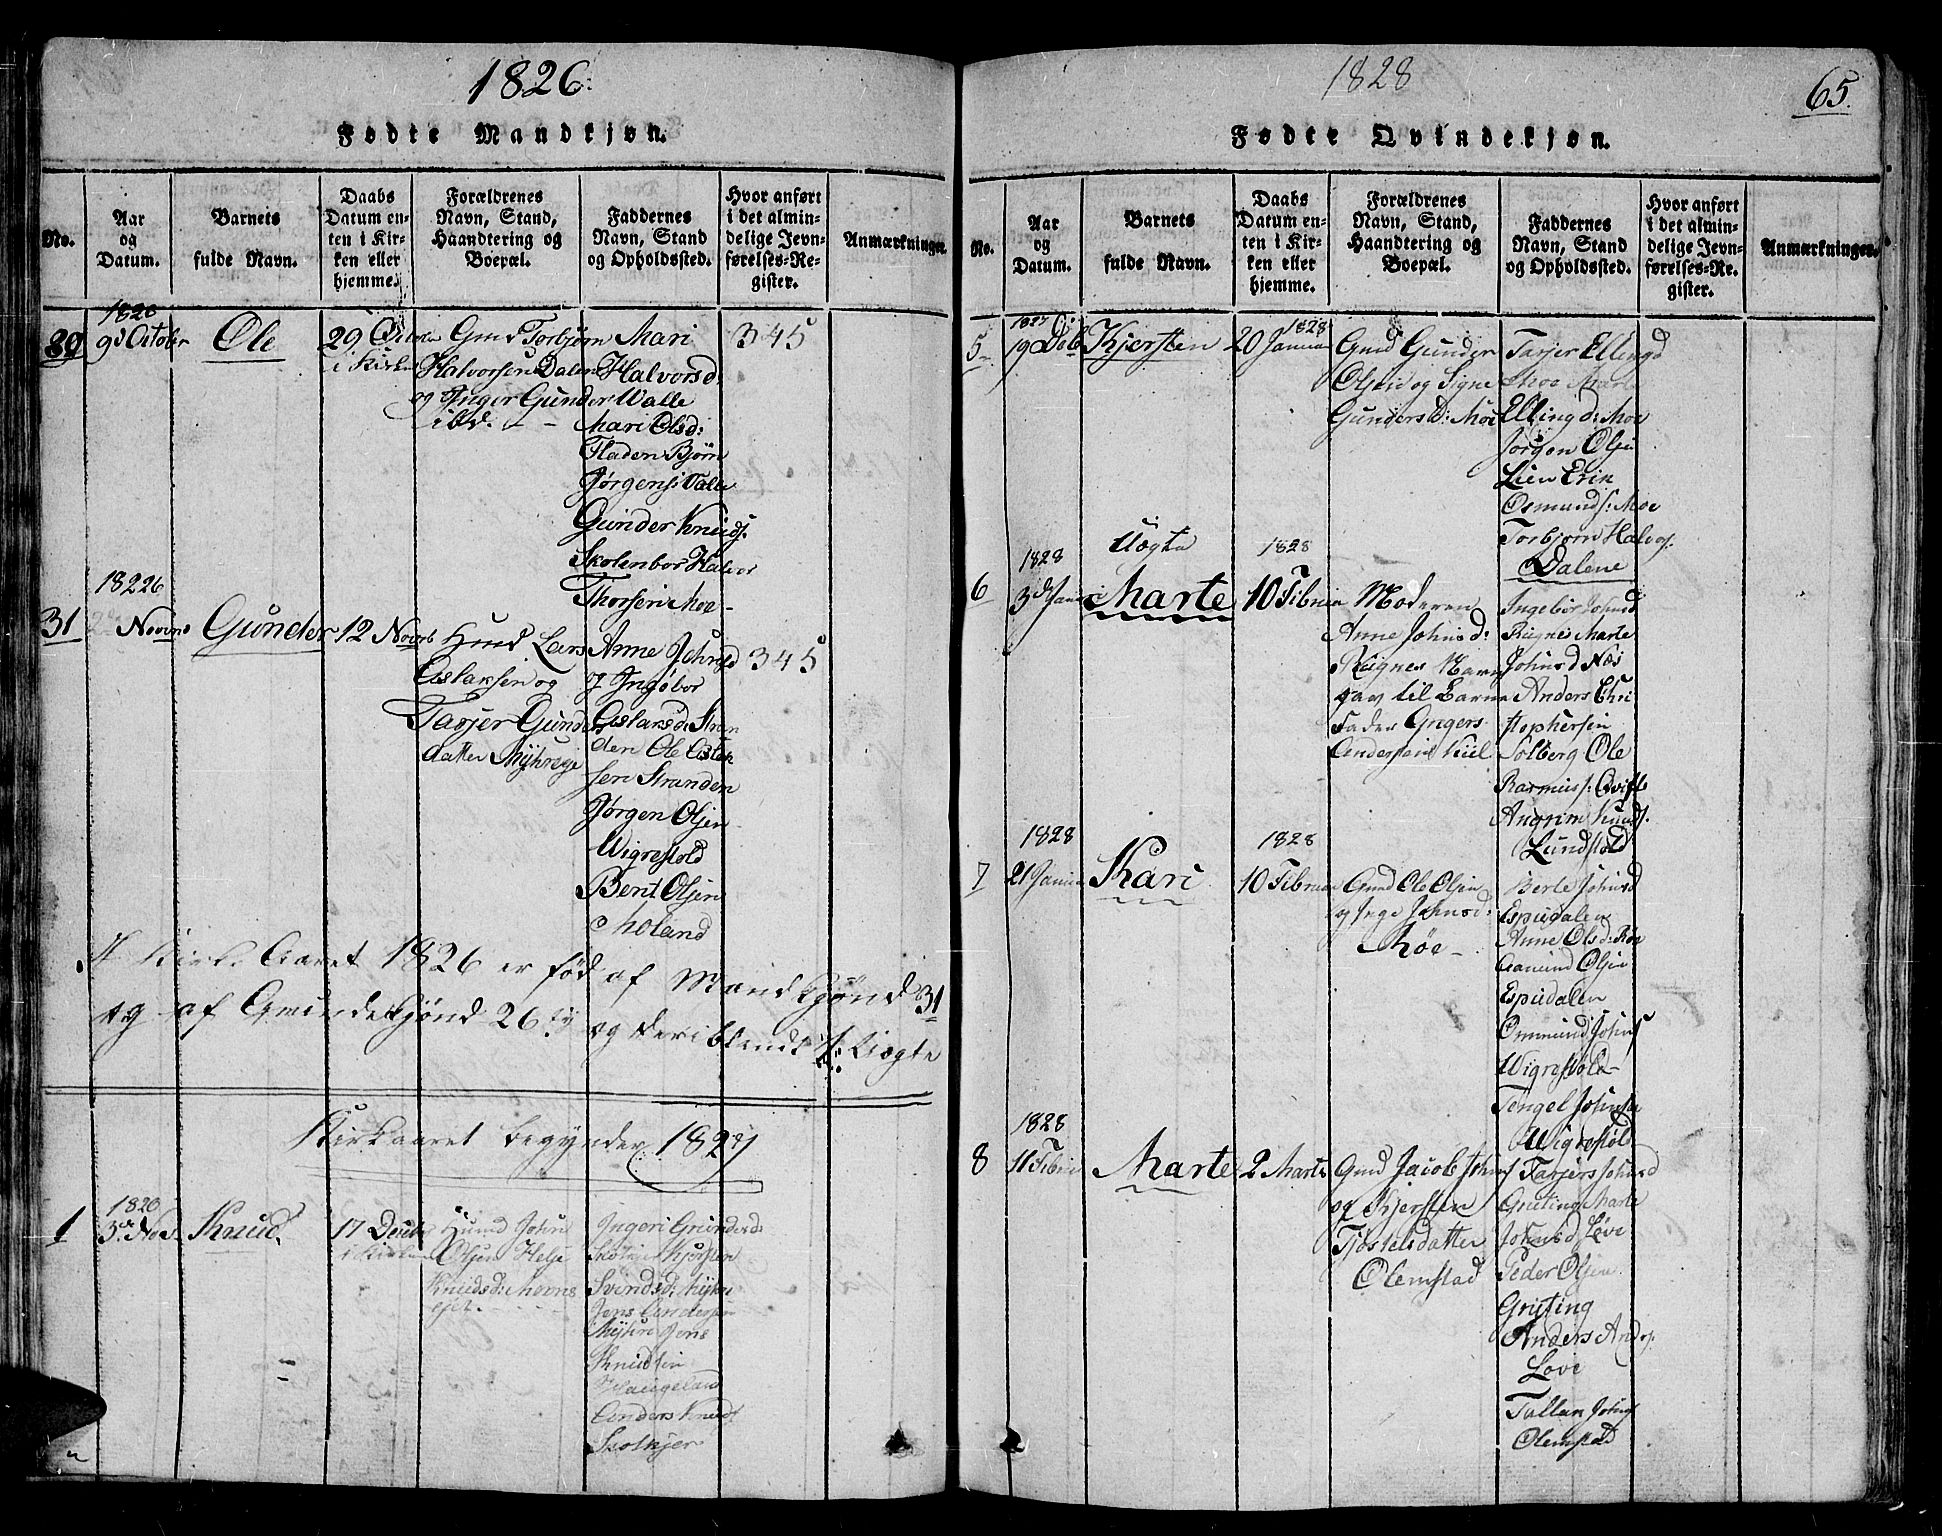 1826.
Fødte Mandkjøn.
No.
Aar
og
Datum.
Barnets
fulde Navn.
Daabs
Datum en-
ten i Kir-
ken eller
hjemme.
Forældrenes
Navn, Stand,
Haandtering og
Boepæl.
Faddernes
Navn, Stand
og Opholdssted.
Hvor anført
i det almin-
delige Jevn-
førelses-Re-
gister.
Anmærkninger.
1826
9d October
Ole
29 Octor
i Kirken
Gmd Torbjørn
Halvorsen Dalen
og Inger Gunder
ibd.
Mari
Halvorsd:
Walle
Mari Olsd:
Fladen Bjørn
Jørgens: Valle
Gunder Knuds.
Skolenbor Halvor
Thorsen Moe
345
18226
31
Novbr
Gunder
12 Novrb
Lars
Aslaksen og
Tarjer Gunders
datter Myhrege
Anne
og Ingebor
Aslaksd: Stran
den Ole Aslak
sen Stranden
Jørgen Olsen
Wigrestold
Bent Olsen
Moland
345
I Kirk. Aaret 1826 er fød af Mandkjønd 31
og af Qvindekjønd 26 og deriblandt Uægte
Kirkaaret begynder 1827
1
1826
3d Nov.
Knud.
17 Decbr
i Kirken
John
Olsen Helje
Knudsd:
Ingeri Gundersd:
Kjersten
Svendsd: Myhre
Jens Andersen
Myhre Jens
Knudsen
Haugeland
Anders Knuds
Skolkjer
1828
65.
Fødte Qvindekjøn.
No.
Aar
og
Datum.
Barnets
fulde Navn.
Daabs
Datum en-
ten i Kir-
ken eller
hjemme.
Forældrenes
Navn, Stand,
Haandtering og
Boepæl.
Faddernes
Navn, Stand
og Opholdssted.
Hvor anført
i det almin-
delige Jevn-
førelses-Re-
gister.
Anmærkninger.
5
1827
19 Deb
Kjersten
1828
20 Januar
Gmd Gunder
Olsen og Signe
Gundersd: Moe
Tarjer Ellingd
Moe Marte
Ellingd: Moe
Jørgen Olsen
Lien Erik
Osmunds: Moe
Torbjørn Halvors.
Dalene
6
1828
3d Janu
Uægte
Marte
1828
10 Februa
Moderen
Anne Johnsd:
Røignes Navn
gav til Barne
Fader Gregers
Andersen Kiel
Ingebor Johnsd
Røignes Marte
Johnsd Næs
Anders Chri
stophersen
Solberg Ole
Rasmus: Qvifte
Angrim Knuds.
Lundstold
7
1828
21 Janua
Kari
1828
10 Februa
Gmd Ole Olsen
og Inge Johnsd:
Møe
Berte Johnsd
Espedalen
Anne Olsd: Røe
Aamund Olsen
Espedalen
Ommund Johns
Wigrestold
Tengel Johnsen
Wigrestold
8
1828
11 Februa
Marte
2 Marts
Gmd Jacob Johns
og Kjersten
Tjøstelsdatter
Olemstad
Tarjers Johnsd
Griting Marte
Johnsd Løve
Peder Olsen
Griting
Anders Ands.
Løve
Tallak Johns
Olemstad